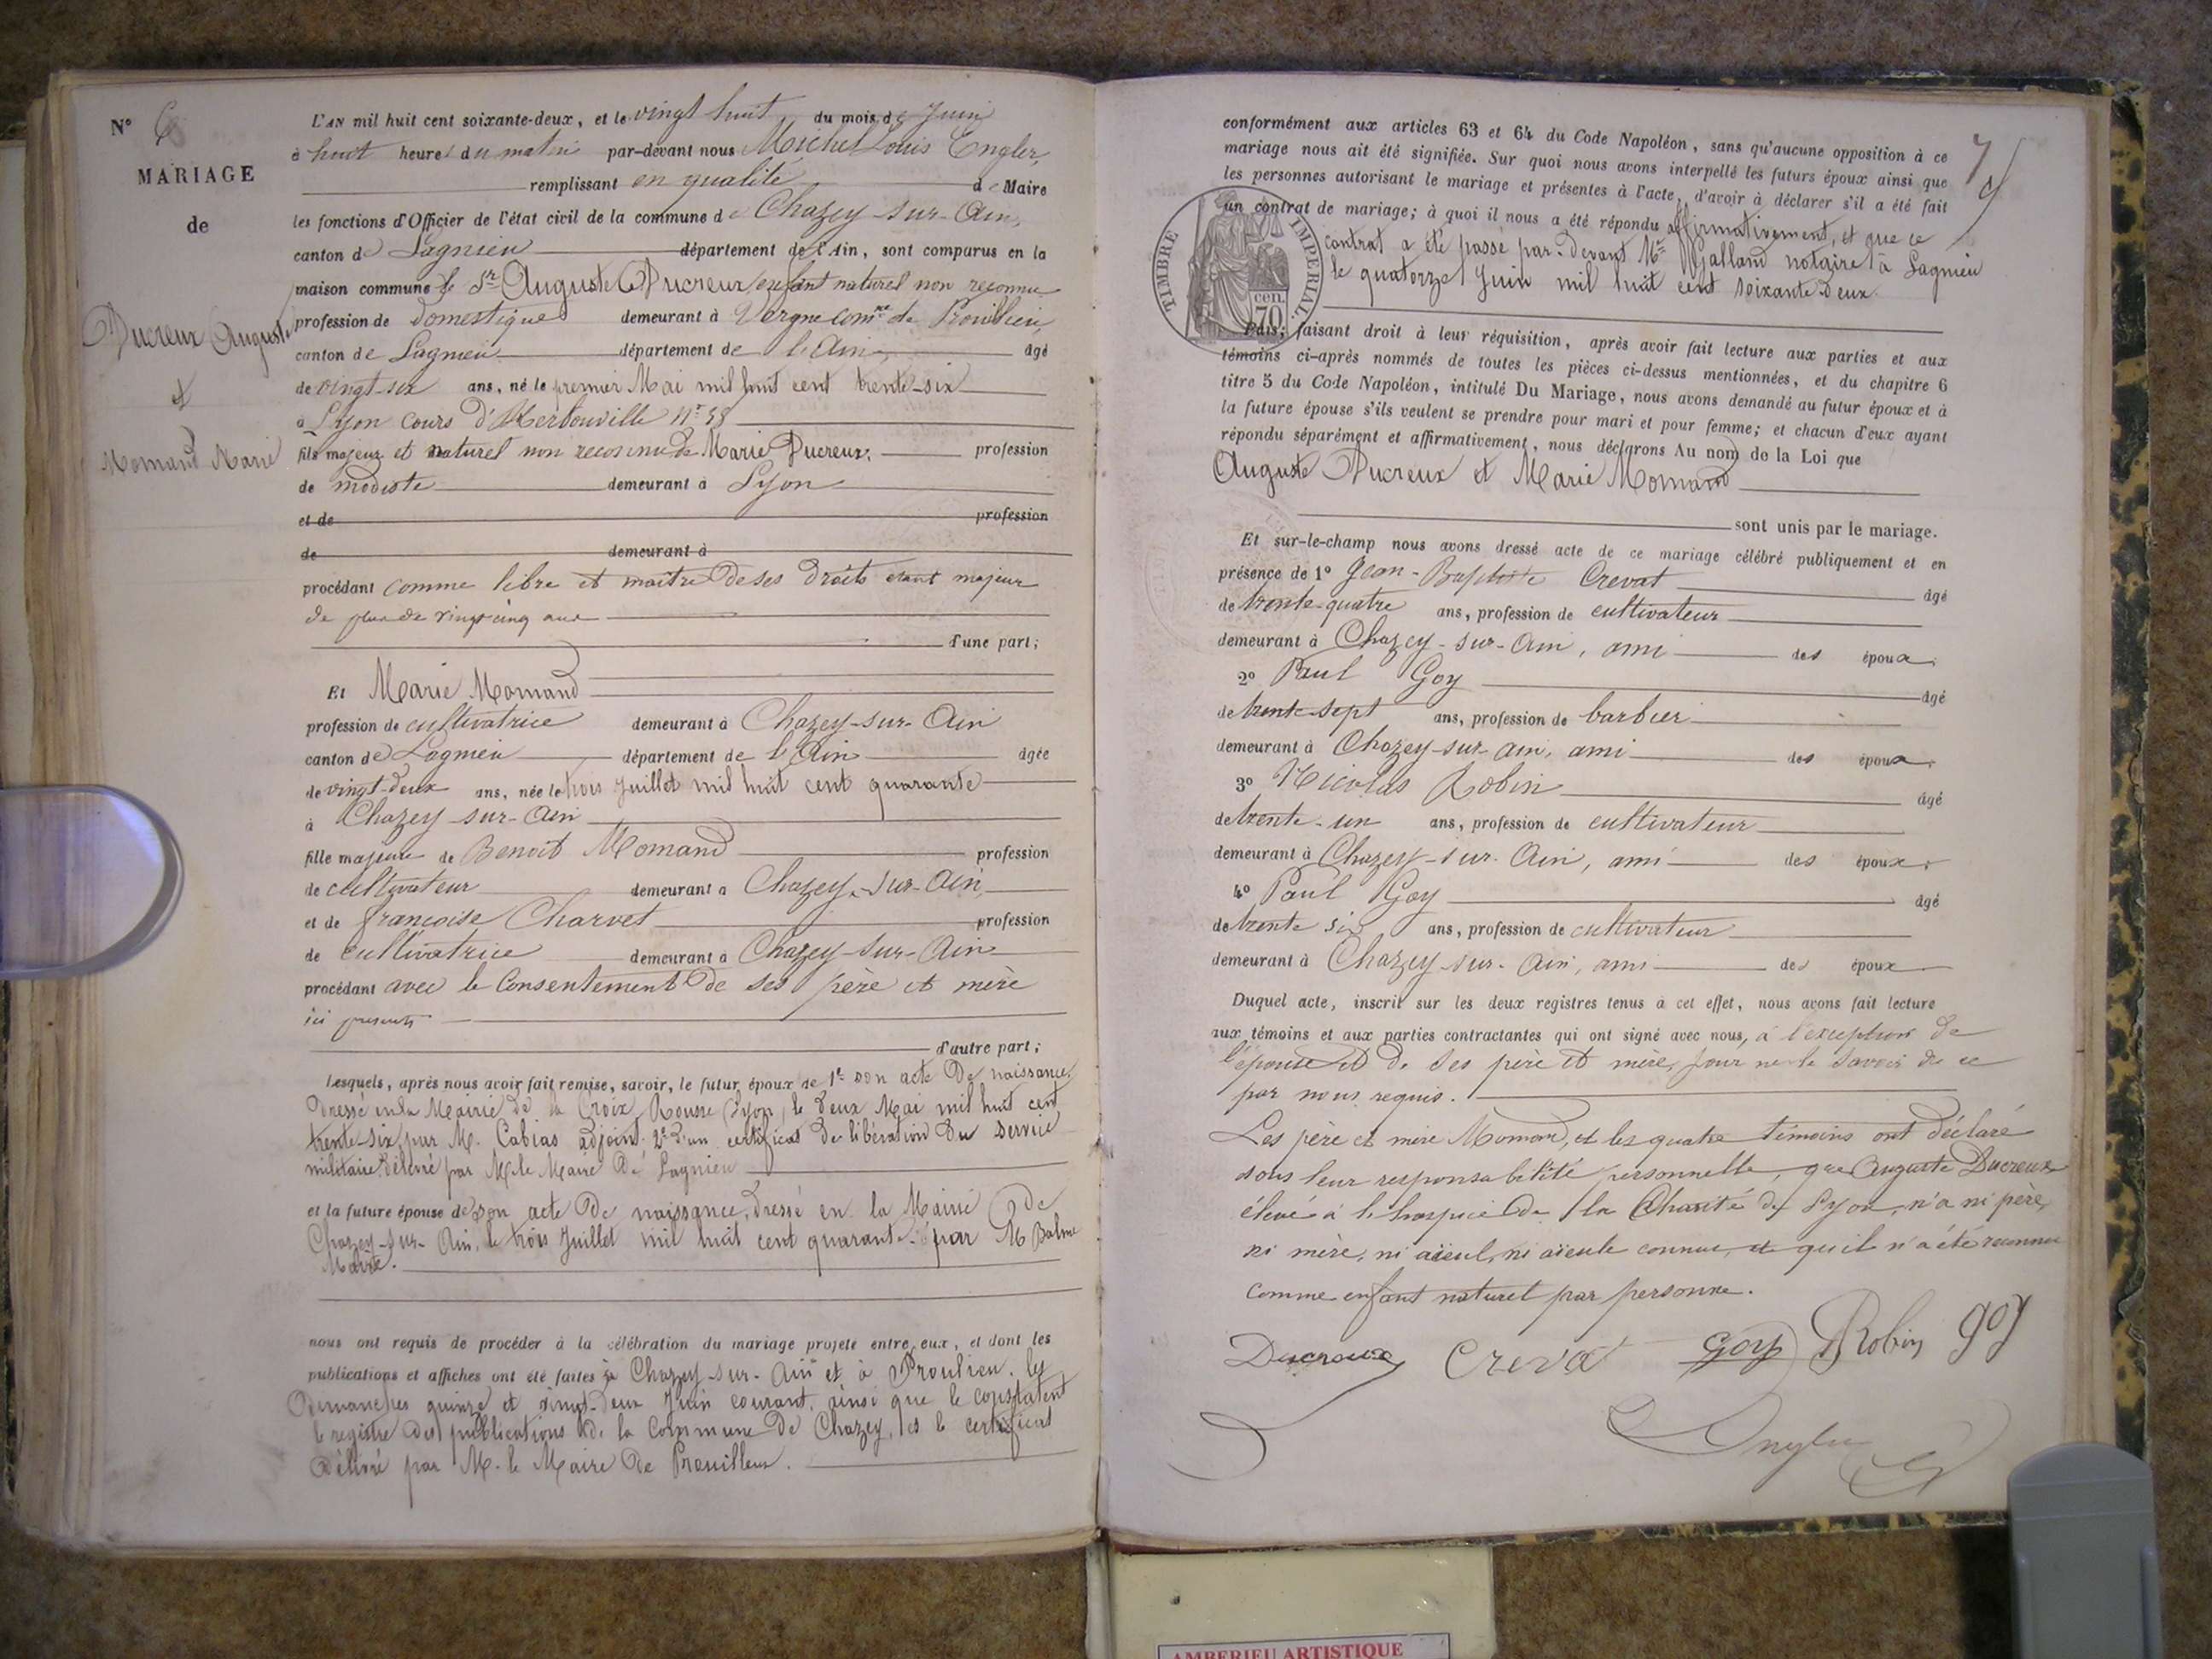 N° 6
MARIAGE
de
Ducreux Auguste
et
Momand Marie
L'AN mil huit cent soixante-deux, et le vingt huit du mois de Juin
à huit heures du matin par-devant nous Michel Louis Engler,
remplissant en qualité de Maire
les fonctions d'Officier de l'état civil de la commune de Chazey-sur-Ain,
canton de Lagnieu département de l'Ain, sont comparus en la
maison commune le Sr Auguste Ducreux enfant naturel non reconnu
profession de domestique demeurant à Vergne comne de Proulieu,
canton de Lagnieu département de l'Ain âgé
de vingt-six ans, né le premier Mai mil huit cent trente-six
à Lyon cours d'Herbouville N° 38
fils majeur et naturel non reconnu de Marie Ducreux, profession
de modiste demeurant à Lyon
et de profession
de demeurant à
procédant comme libre et maître de ses droits étant majeur
de plus de vingt cinq ans
d'une part;
Et Marie Momand
profession de cultivatrice demeurant à Chazey-sur-Ain
canton de Lagnieu département de l'Ain âgée
de vingt-deux ans, née le trois Juillet mil huit cent quarante
à Chazey-sur-Ain
fille majeure de Benoit Momand profession
de cultivateur demeurant à Chazey-sur-Ain,
et de françoise Charvet profession
de cultivatrice demeurant à Chazey-sur-Ain
procédant avec le Consentement de ses père et mère
ici présents
d'autre part;
Lesquels, après nous avoir fait remise, savoir, le futur époux de 1° son acte de naissance,
dressé en la Mairie de la Croix Rousse (Lyon) le deux Mai mil huit cent
trente-six, par M. Cabias adjoint. 2° d'un certificat de libération du service
militaire délivré par M. le Maire de Lagnieu
et la future épouse de son acte de naissance, dressé en la Mairie de
Chazey-sur-Ain, le trois Juillet mil huit cent quarante, par M Balme
Maire.
nous ont requis de procéder à la célébration du mariage projeté entre eux, et dont les
publications et affiches ont été faites à Chazey-sur-Ain et à Proulieu, les
Dimanches quinze et vingt-deux Juin courant, ainsi que le constatent
le registre des publications de la Commune de Chazey, et le certificat
délivré par M. le Maire de Prouilleux.
conformément aux articles 63 et 64 du Code Napoléon, sans qu'aucune opposition à ce
mariage nous ait été signifiée. Sur quoi nous avons interpellé les futurs époux ainsi que
les personnes autorisant le mariage et présentes à l'acte, d'avoir à déclarer s'il a été fait
un contrat de mariage; à quoi il nous a été répondu affirmativement, et que ce
contrat a été passé par-devant Me Galland notaire à Lagnieu
le quatorze Juin mil huit cent soixante-deux.
7
TIMBRE IMPERIAL.
70 cen.
Puis, faisant droit à leur réquisition, après avoir fait lecture aux parties et aux
témoins ci-après nommés de toutes les pièces ci-dessus mentionnées, et du chapitre 6
titre 5 du Code Napoléon, intitulé Du Mariage, nous avons demandé au futur époux et à
la future épouse s'ils veulent se prendre pour mari et pour femme; et chacun d'eux ayant
répondu séparément et affirmativement, nous déclarons Au nom de la Loi que
Auguste Ducreux et Marie Momand
sont unis par le mariage.
Et sur-le-champ nous avons dressé acte de ce mariage célébré publiquement et en
présence de 1° Jean-Baptiste Crevat âgé
de trente-quatre ans, profession de cultivateur
demeurant à Chazey-sur-Ain, ami des époux.
2° Paul Goy âgé
de trente-sept ans, profession de barbier
demeurant à Chazey-sur-ain, ami des époux.
3° Nicolas Robin âgé
de trente-un ans, profession de cultivateur
demeurant à Chazey-sur-Ain, ami des époux.
4° Paul Goy âgé
de trente six ans, profession de cultivateur
demeurant à Chazey-sur-Ain, ami des époux
Duquel acte, inscrit sur les deux registres tenus à cet effet, nous avons fait lecture
aux témoins et aux parties contractantes qui ont signé avec nous, à l'exception de
l'épouse et de ses père et mère, pour ne le savoir de ce
par nous requis.
Les père et mère Momand, et les quatre témoins ont déclaré
sous leur responsabilité personnelle, que Auguste Ducreux
élevé à l'hospice de la Charité de Lyon, n'a ni père,
ni mère, ni aïeul, ni aïeule connus, et qu'il n'a été reconnu
comme enfant naturel par personne.
Ducreux Crevat Goy Robin goy
Engler
AMBERIEU ARTISTIQUE